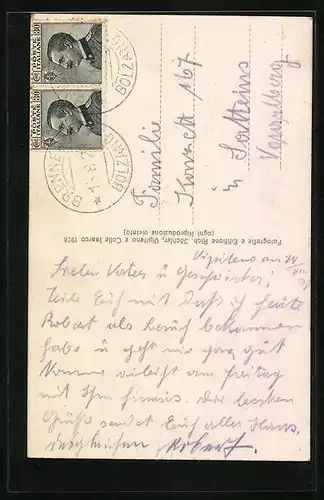 POSTE ITALIANE
POSTE ITALIANE
BRENNERO
BOLZANO
Familie
167
in Satteins
Vorarlberg
Fotografie e Editione Rich. Jöchler, Vipiteno e Colle Isarco 1928
(ogni Riproduzione vietato)
Vipiteno am 14
Lieber Vater u Geschwister!
Teile Euch mit daß ich heute
Robert als
habe u geht mir ganz gut
Komme am Freitag
mit Ihm hinaus. Die besten
Grüße sendet Euch allen Hans.
desgleichen Robert.